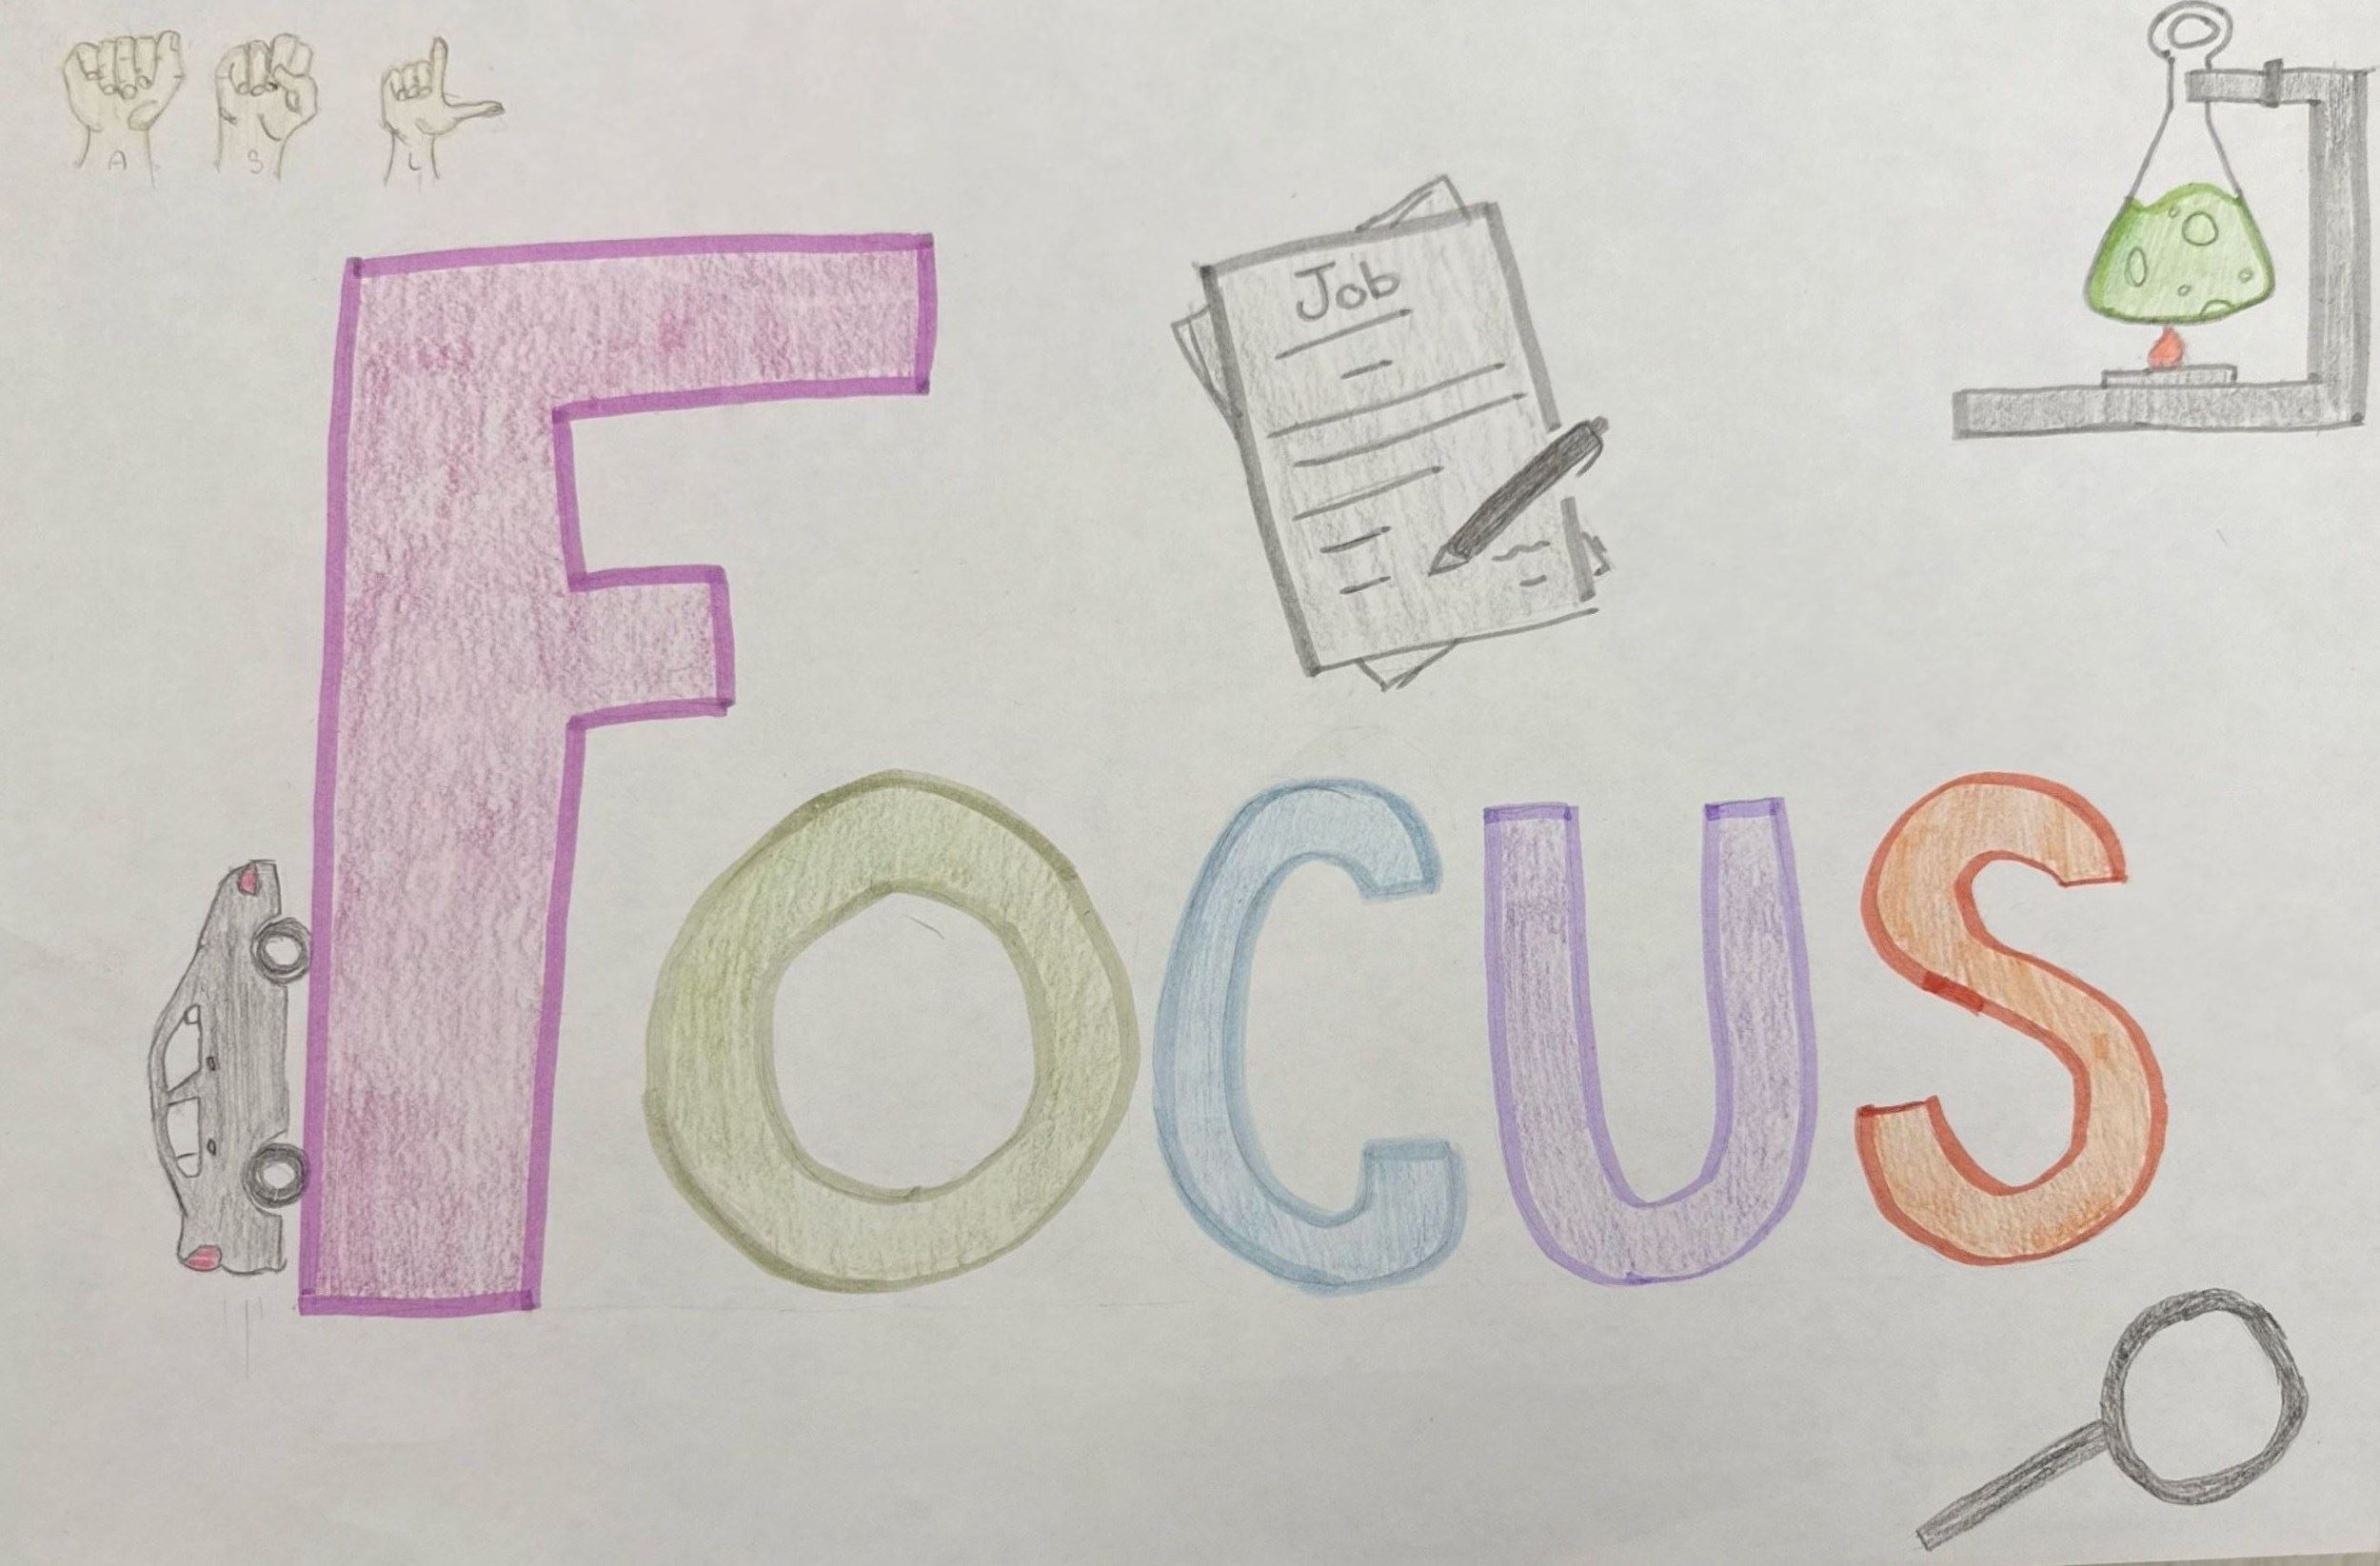 A S L
Job
FOCUS